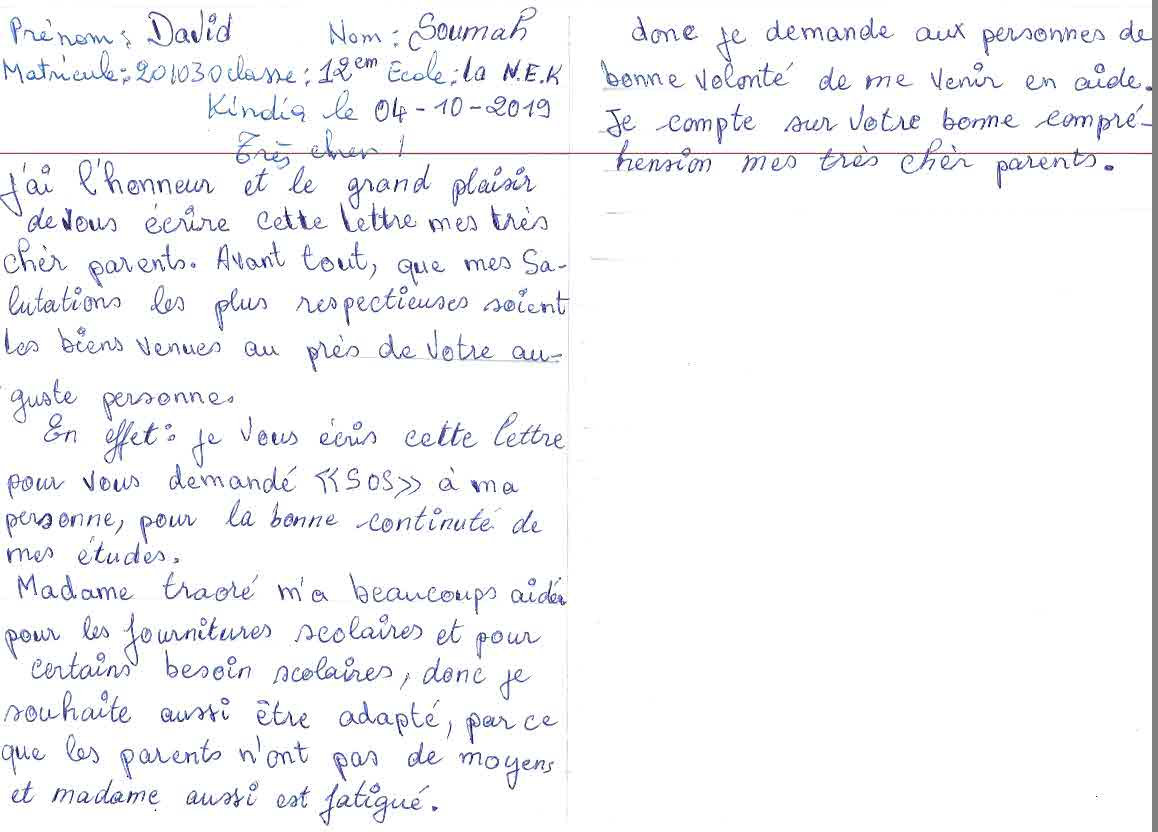 Prénom : David Nom : Soumah
Matricule : 201030 classe : 12em Ecole : la N.E.K
Kindia le 04-10-2019
Très cher !
J'ai l'honneur et le grand plaisir
de vous écrire cette lettre mes très
chèr parents. Avant tout, que mes Sa-
lutations les plus respectieuses soient
les biens venues au près de votre au-
guste personne.
En effet : je vous écris cette lettre
pour vous demandé «SOS» à ma
personne, pour la bonne continuté de
mes études.
Madame traoré m'a beaucoups aidée
pour les fournitures scolaires et pour
certains besoin scolaires, donc je
souhaite aussi être adapté, par ce
que les parents n'ont pas de moyens
et madame aussi est fatigué.
donc je demande aux personnes de
bonne volonté de me venir en aide.
Je compte sur votre bonne compré-
hension mes très chèr parents.